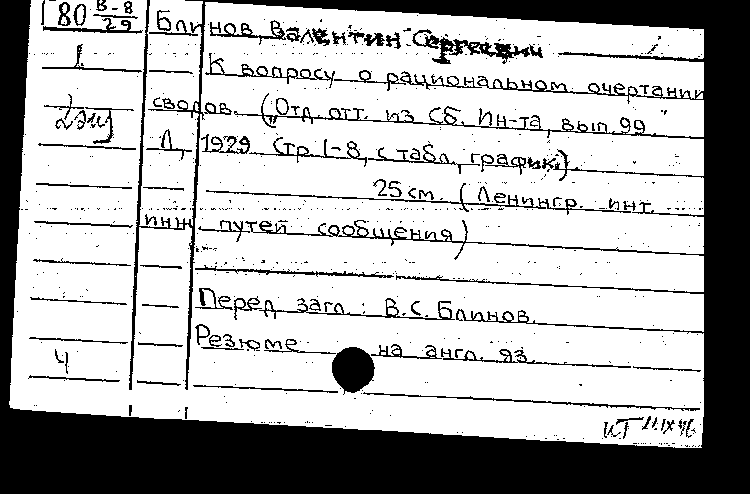 80 В-8/29 Блинов, Валентин Сергеевич
1 К вопросу о рациональном очертании
2 экз сводов. ("Отд. отт. из Сб. Ин-та, вып. 99."
Л, 1929 Стр. 1-8, с табл., график.).
25 см. (Ленингр. инт.
инж. путей сообщения)
Перед загл.: В.С. Блинов.
Резюме на англ. яз.
4
ИТ 11.IX 46